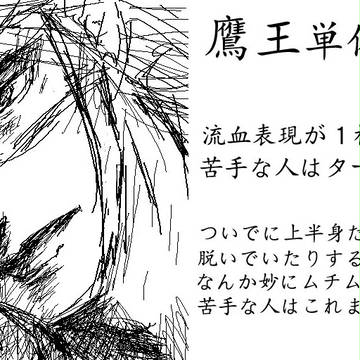 鷹王単
流血表現が1
苦手な人はター
ついでに上半身だ
脱いでいたりする
なんか妙にムチム
苦手な人はこれま